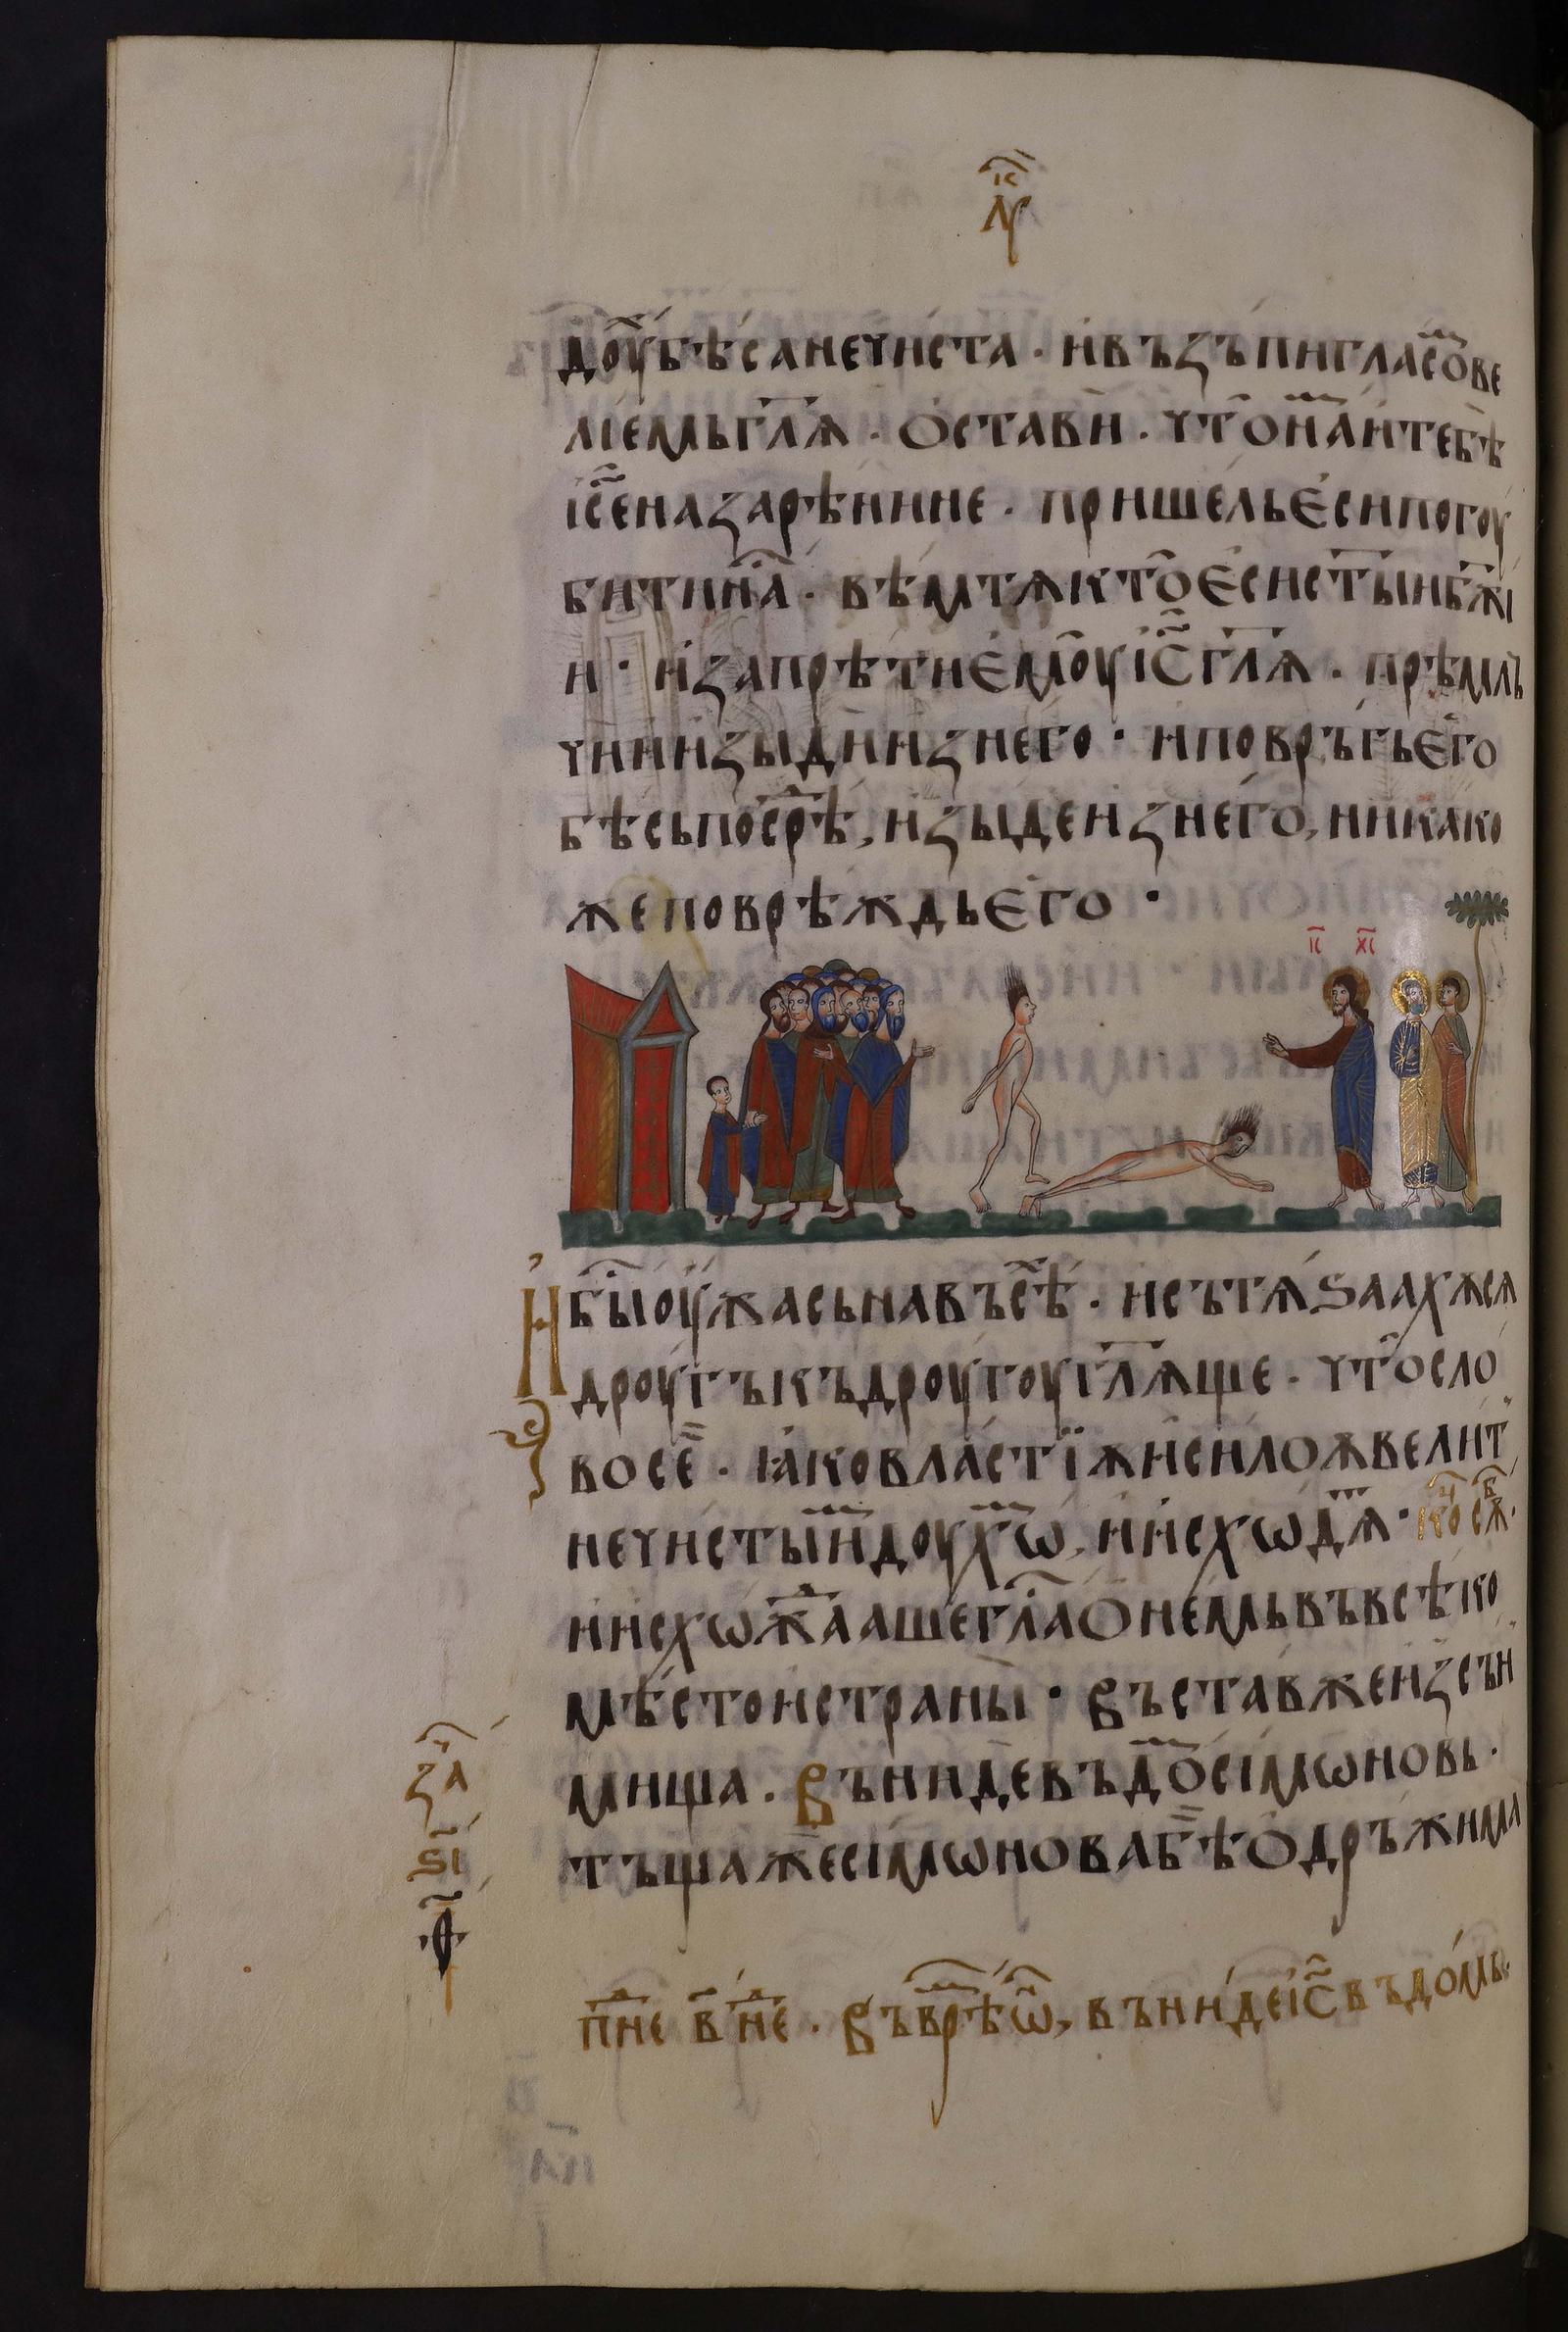 к҃ лꙋ
доу҃ бѣ́са нечи́ста · и҆ въꙁъпи гла́сѡ҃ ве
лїе́мь гл҃ѧ · ѻ҆ста́ви · что̀ на́м и҆ тебѣ̀
і҆с҃е наꙁарѣ́нине · прише́ль є҆си погоу
бити на̀ · вѣ́м тѧ кто̀ є҆си ст҃ыи бж҃і
и · и҆ ꙁапрѣ́ти є҆мо́у і҆с҃ гл҃ѧ · прѣмлъ
чи и҆ иꙁыди иꙁ него · и҆ поврьгъ є҆го
бѣ́сь посрѣ̀, иꙁы́де иꙁ него̀, ни како
же поврѣ́ждь є҆го ·
і҃с х҃с
И҆ бы̀ оу҆́жась на въсѣ̀ · и сътѧѕаахѫ сѧ
дроу́гъ къ дроу́гоу гл҃ѧще · что̀ сло
во се҄ · ꙗ҆ко вла́стїѫ и҆ си́лоѫ вели́т
нечи́стыи́м доу́хѡ҃, и҆ и҆схѡдѧ́ · ко҃ сѫ҃ ·
и҆ и҆схѡжаа́ше гла̀ ѻ҆ не́мь въ всѣ́ко
мѣ́сто и҆ страны̀ · Въста́в же иꙁ сън
мища · Въни́де въ до̀ сі́мѡновь ·
тъща же сі́мѡнова бѣ̀ ѻ҆дръжима
ꙁа҃ч
ѕі҃
пне҃ в҃ не҃ · Въ врѣ̀ ѡ҃, въни́де і҆с҃ въ до́мь ·